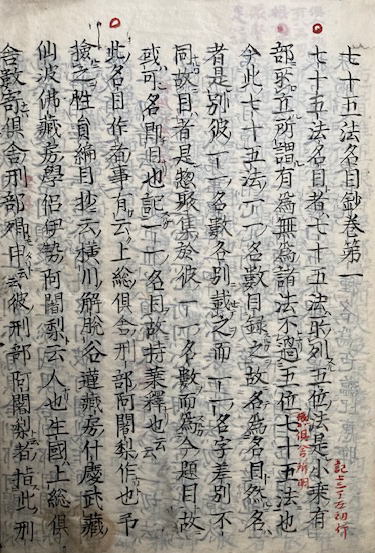 七十五法名目鈔卷第一
七十五法名目者七十五法所列五位法是小乘有
部所立所謂有為無為諸法不過五位七十五法也
今此七十五法一一名數目錄之故名為名目然名
者是別彼一一名數各別載之而一一名字差別不
同故目者是惣聚集於彼一一名數而為今題目故
或可名即目也記一一名目故持業釋也云云
此名目作者事有云上総俱舍刑部阿闍梨作也予
撿之性自綱目抄云横川解脱谷蓮藏房什慶武藏
仙波佛藏房學侶伊勢阿闍梨云人也生國上総俱
舍數寄俱舍刑部
彼刑部阿闍梨者指此刑